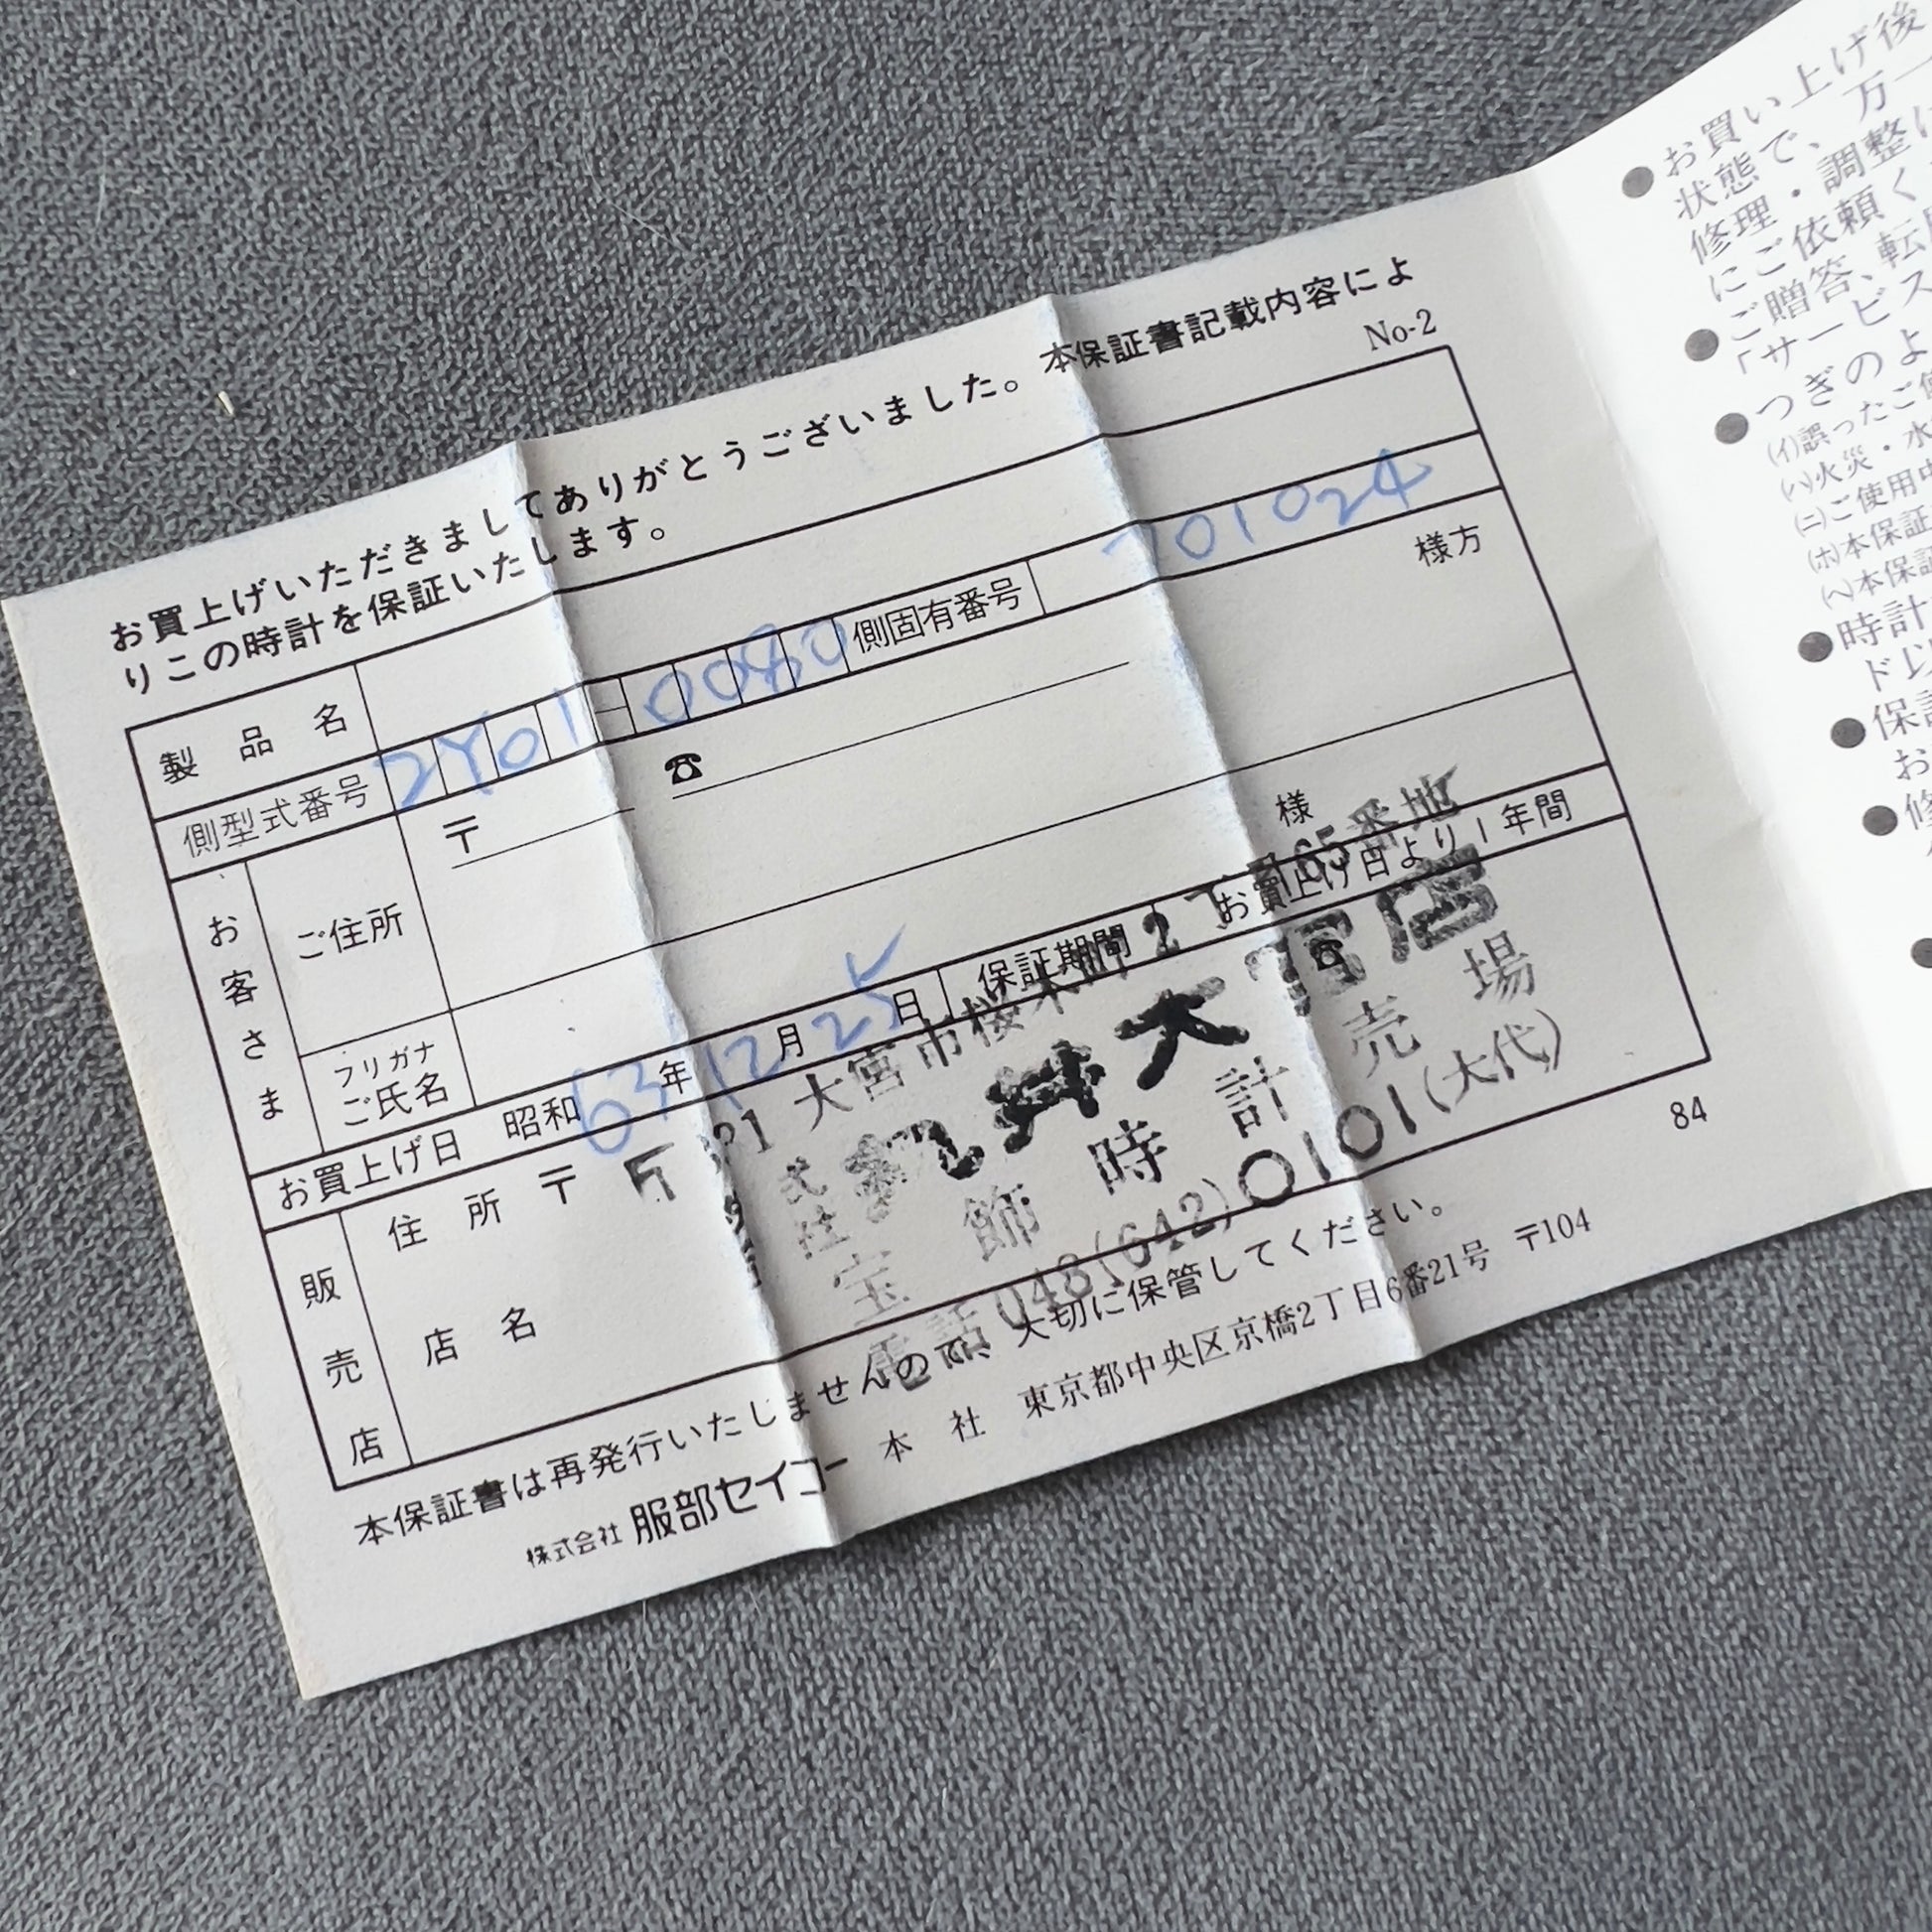 お買上げいただきましてありがとうございました。本保証書記載内容によ
りこの時計を保証いたします。
No-2
製品名
側型式番号 2Y01-0080 側固有番号 701024
お客さま
ご住所 〒 ☎
様方
フリガナ
ご氏名 様
お買上げ日 昭和63年12月25日 保証期間 お買上げ日より1年間
販売店
住所 〒 ☎
店名
大宮市桜木町2 165番地
丸井大宮店
宝飾時計売場
電話048(642)0101(大代)
本保証書は再発行いたしませんので、大切に保管してください。
84
株式会社 服部セイコー 本社 東京都中央区京橋2丁目6番21号 〒104
●お買い上げ後
状態で、万一
修理・調整
にご依頼く
●ご贈答、転
「サービス
●つぎのよ
(イ)誤ったご使
(ハ)火災・水
(ニ)ご使用中
(ホ)本保証
(ヘ)本保証
●時計
ド以
●保証
お
●修